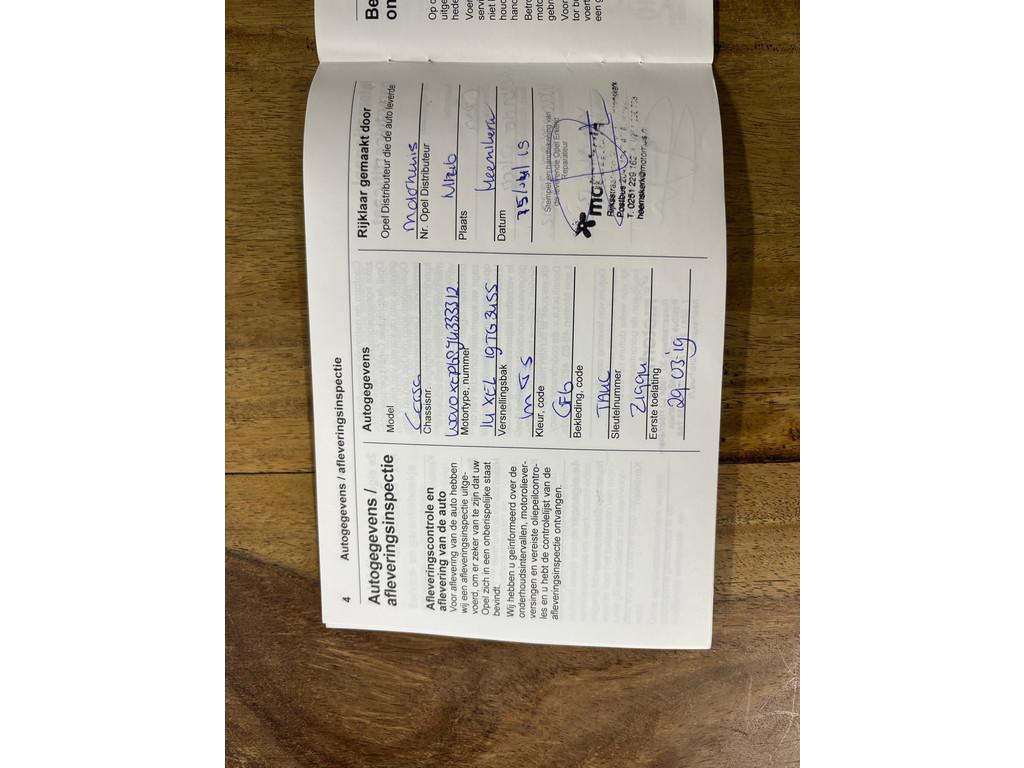 4
Autogegevens / afleveringsinspectie
Autogegevens /
afleveringsinspectie
Afleveringscontrole en
aflevering van de auto
Voor aflevering van de auto hebben
wij een afleveringsinspectie uitge-
voerd, om er zeker van te zijn dat uw
Opel zich in een onberispelijke staat
bevindt.
Wij hebben u geïnformeerd over de
onderhoudsintervallen, motoroliever-
versingen en vereiste oliepeilcontro-
les en u hebt de controlelijst van de
afleveringsinspectie ontvangen.
Autogegevens
Model
Corsa
Chassisnr.
Motortype, nummer
14XEL 19TG3455
Versnellingsbak
Kleur, code
Bekleding, code
TAUC
Sleutelnummer
Eerste toelating
29-03-19
Rijklaar gemaakt door
Opel Distributeur die de auto leverde
Motorhuis
Nr. Opel Distributeur
Plaats
Heemskerk
Datum
Stempel en handtekening van
de leverende Opel Erkend
Reparateur
Postbus
T. 0251 229
heemskerk@motorhuis.nl
Be
on